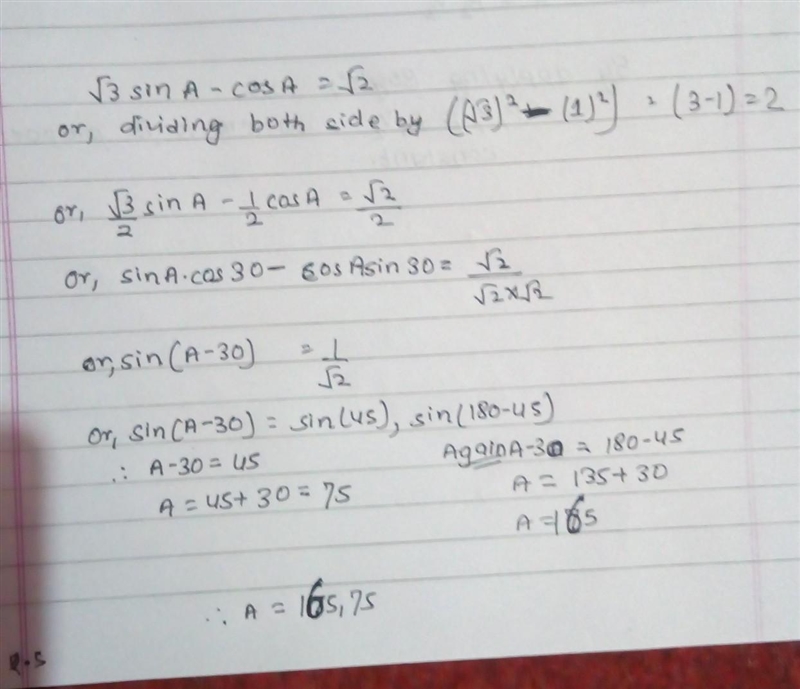 √3 sin A - cos A = √2
or, dividing both side by ((√3)² - (1)²) = (3-1) = 2
or, √3/2 sin A - 1/2 cos A = √2/2
Or, sin A. cos 30 - cos A sin 30 = √2/√2×√2
or, sin (A-30) = 1/√2
Or, sin (A-30) = sin (45), sin (180-45)
∴ A-30 = 45
A = 45 + 30 = 75
Again A-30 = 180-45
A = 135 + 30
A = 165
∴ A = 165, 75
Q.5